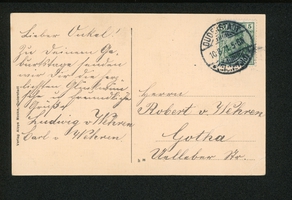 Lieber Onkel!
Zu Deinem Ge-
burtstage senden
wir Dir die herz-
lichsten Glückwün
Grüße
Ludwig v Wehren
Carl v Wehren
Herrn
Robert von Wehren
Gotha
Uelleber Str.
5